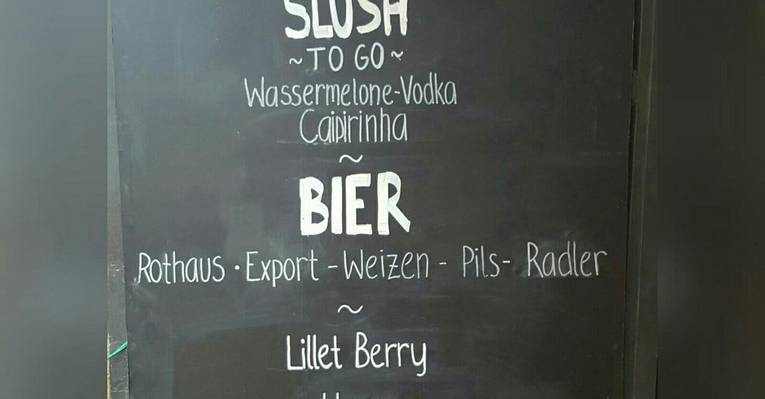 SLUSH
~TO GO~
Wassermelone-Vodka
Caipirinha
~
BIER
Rothaus · Export - Weizen - Pils - Radler
~
Lillet Berry